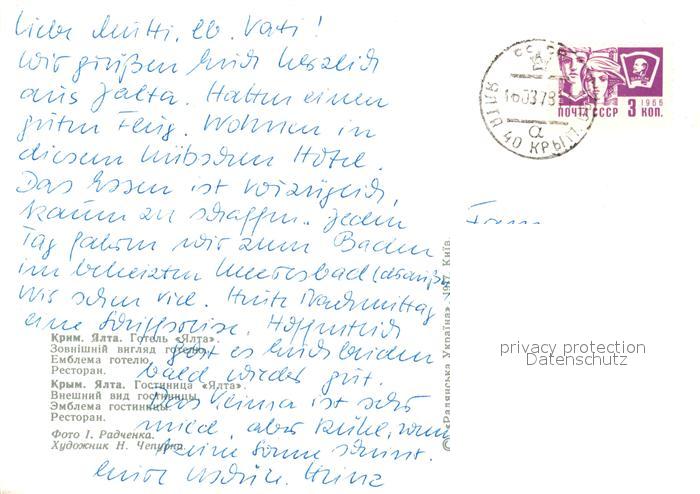 Liebe Mutti, lb. Vati!
Wir grüßen Euch herzlich
aus Jalta. Hatten einen
guten Flug. Wohnen in
diesem hübschen Hotel.
Das Essen ist vorzüglich,
kaum zu schaffen. Jeden
Tag fahren wir zum Baden
im beheizten Meeresbad
Wir sehen viel. Heute Nachmittag
eine Schiffsreise. Hoffentlich
geht es Euch beiden
bald wieder gut.
Das Klima ist sehr
mild, aber kühl, wenn
keine Sonne scheint.
Heinz
СССР
16.03.78
ЯЛТА
40 КРЫМ.
а
ПОЧТА СССР
1966
3 КОП.
Крим. Ялта. Готель «Ялта».
Зовнішній вигляд готелю.
Емблема готелю.
Ресторан.
Крым. Ялта. Гостиница «Ялта».
Внешний вид гостиницы.
Эмблема гостиницы.
Ресторан.
Фото І. Радченка.
Художник Н. Чепурна.
© «Радянська Україна». 1977. Київ.
privacy protection
Datenschutz